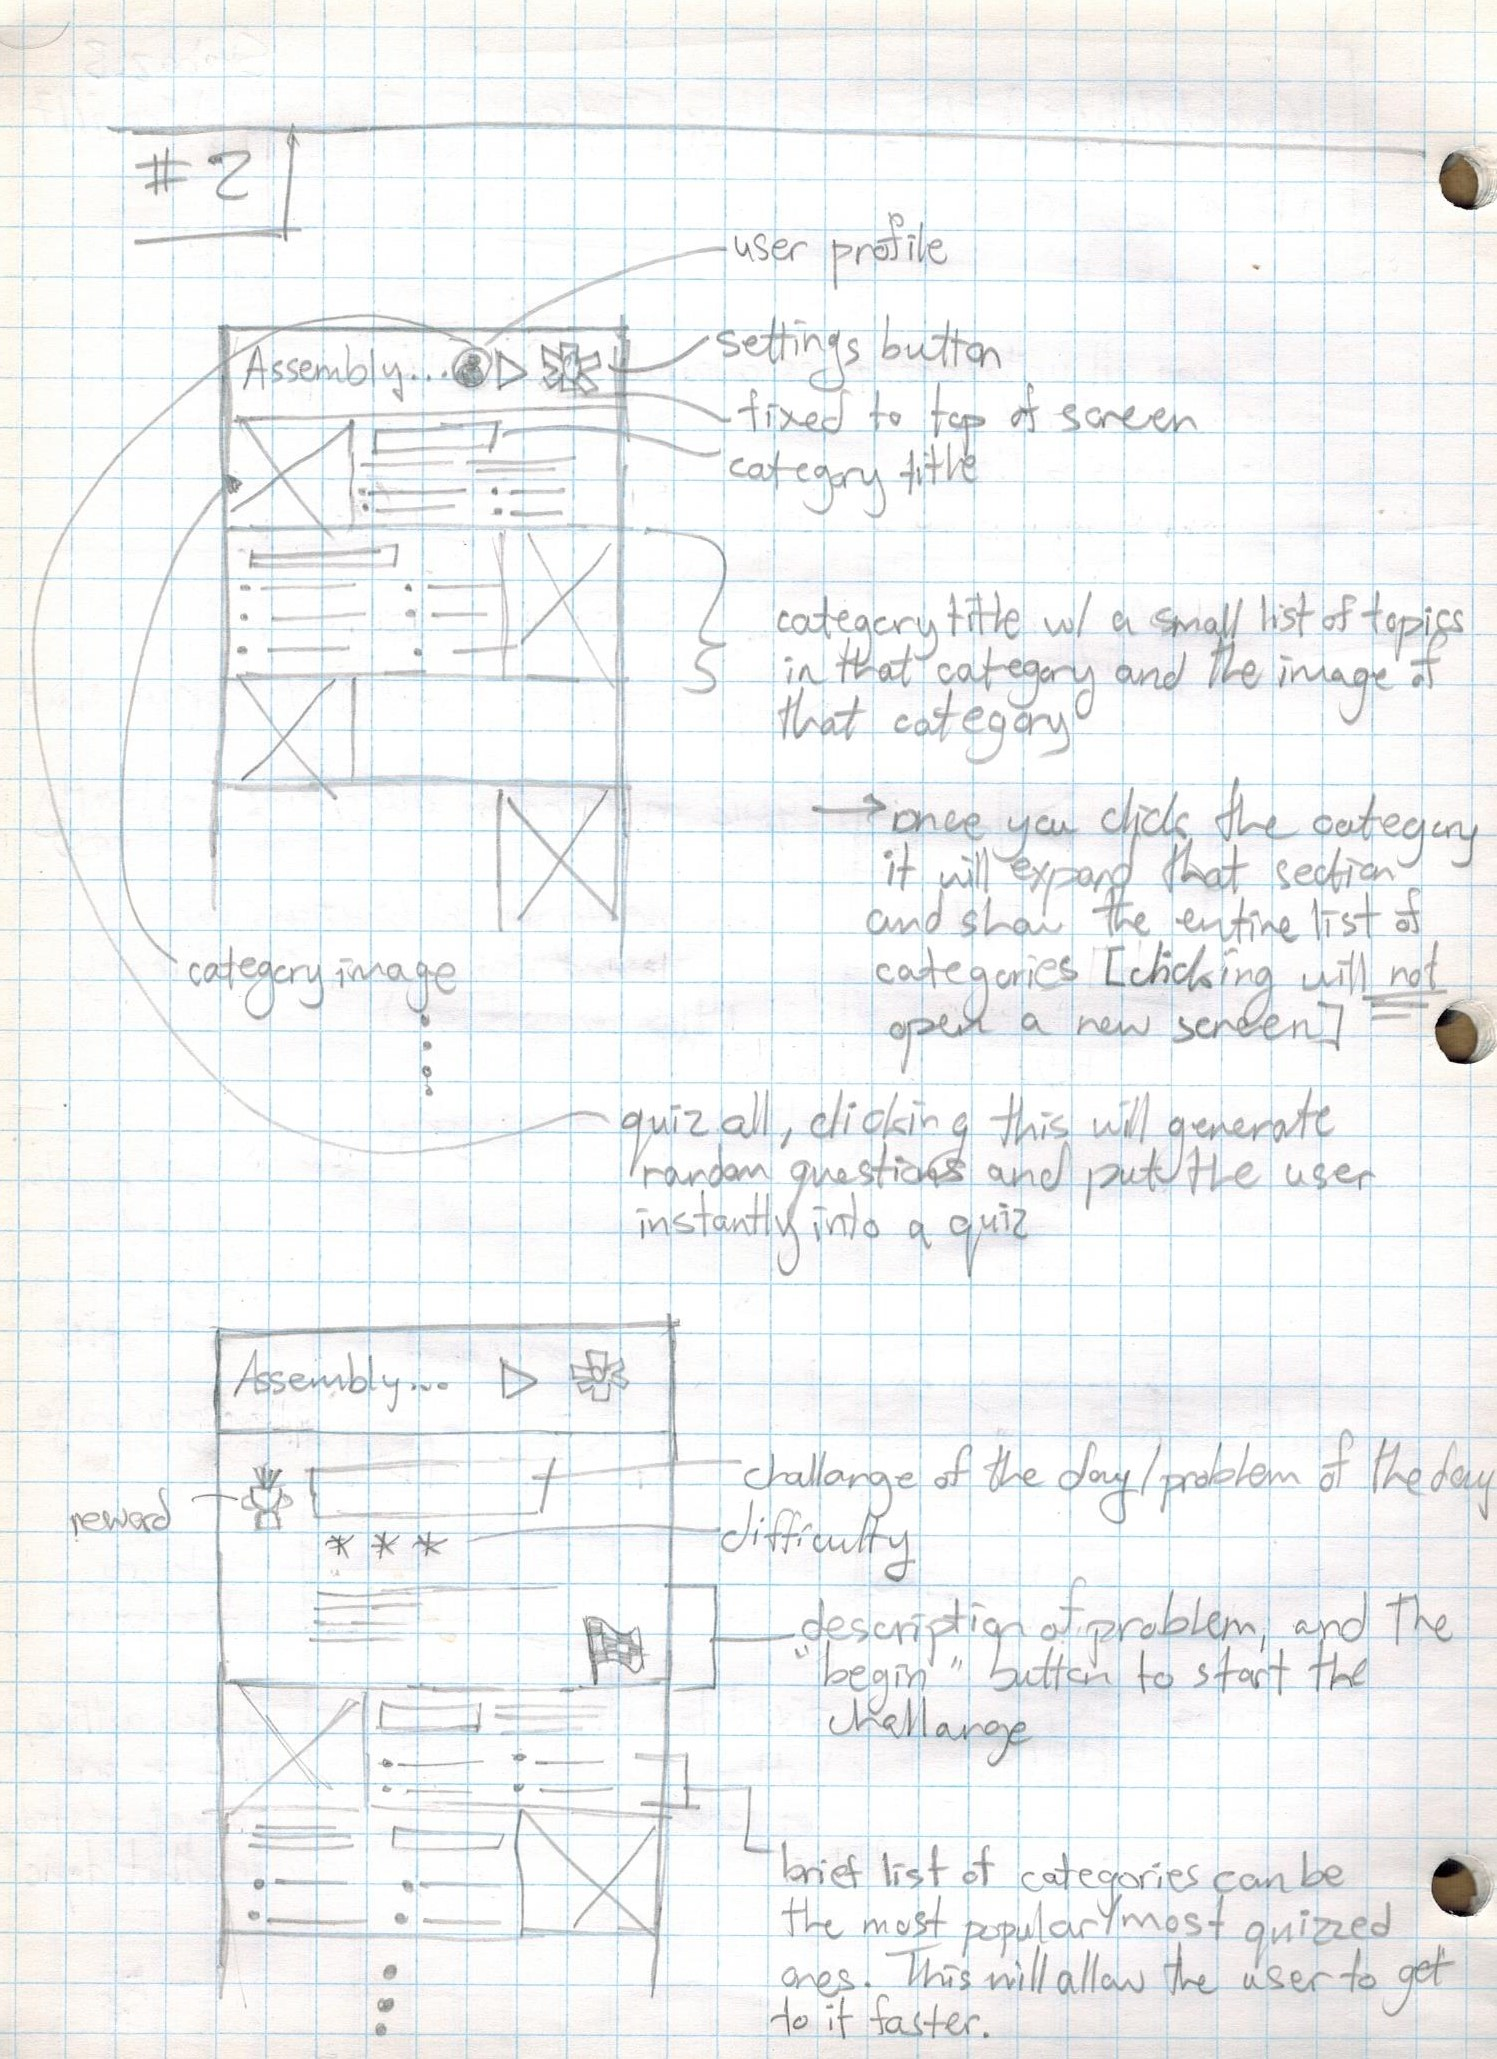 #2
user profile
Assembly...
settings button
fixed to top of screen
category title
category title w/ a small list of topics
in that category and the image of
that category
→ once you click the category
it will expand that section
and show the entire list of
categories [clicking will not
open a new screen]
category image
quiz all, clicking this will generate
random questions and put the user
instantly into a quiz
Assembly...
challange of the day/problem of the day
reward
* * *
difficulty
description of problem, and the
"begin" button to start the
challange
brief list of categories can be
the most popular/most quizzed
ones. This will allow the user to get
to it faster.